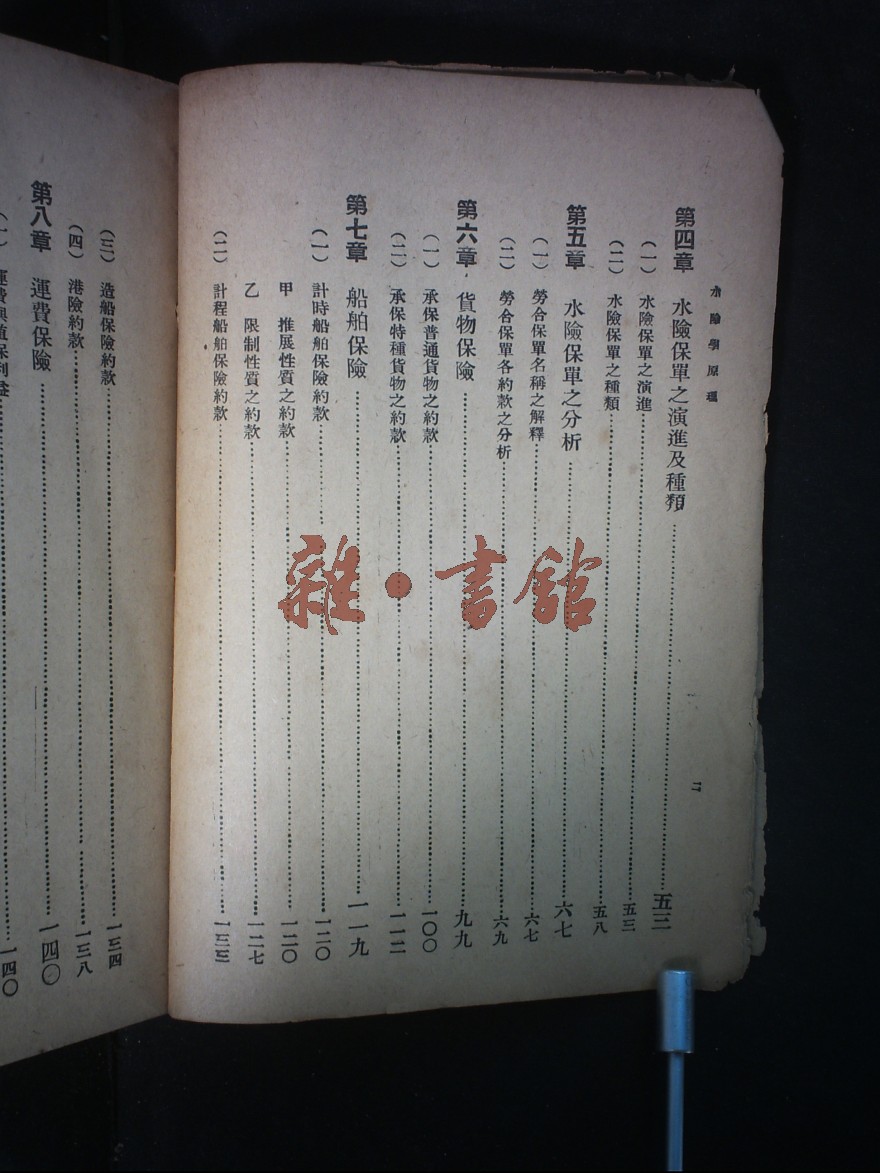 水險學原理
二
第四章 水險保單之演進及種類 五三
(一) 水險保單之演進 五三
(二) 水險保單之種類 五八
第五章 水險保單之分析 六七
(一) 勞合保單名稱之解釋 六七
(二) 勞合保單各約款之分析 六九
第六章 貨物保險 九九
(一) 承保普通貨物之約款 一〇〇
(二) 承保特種貨物之約款 一一二
第七章 船舶保險 一一九
(一) 計時船舶保險約款 一二〇
甲 推展性質之約款 一二〇
乙 限制性質之約款 一二七
(二) 計程船舶保險約款 一三三
(三) 造船保險約款 一三四
(四) 港險約款 一三八
第八章 運費保險 一四〇
(一) 運費與 保利益 一四〇
雜·書館